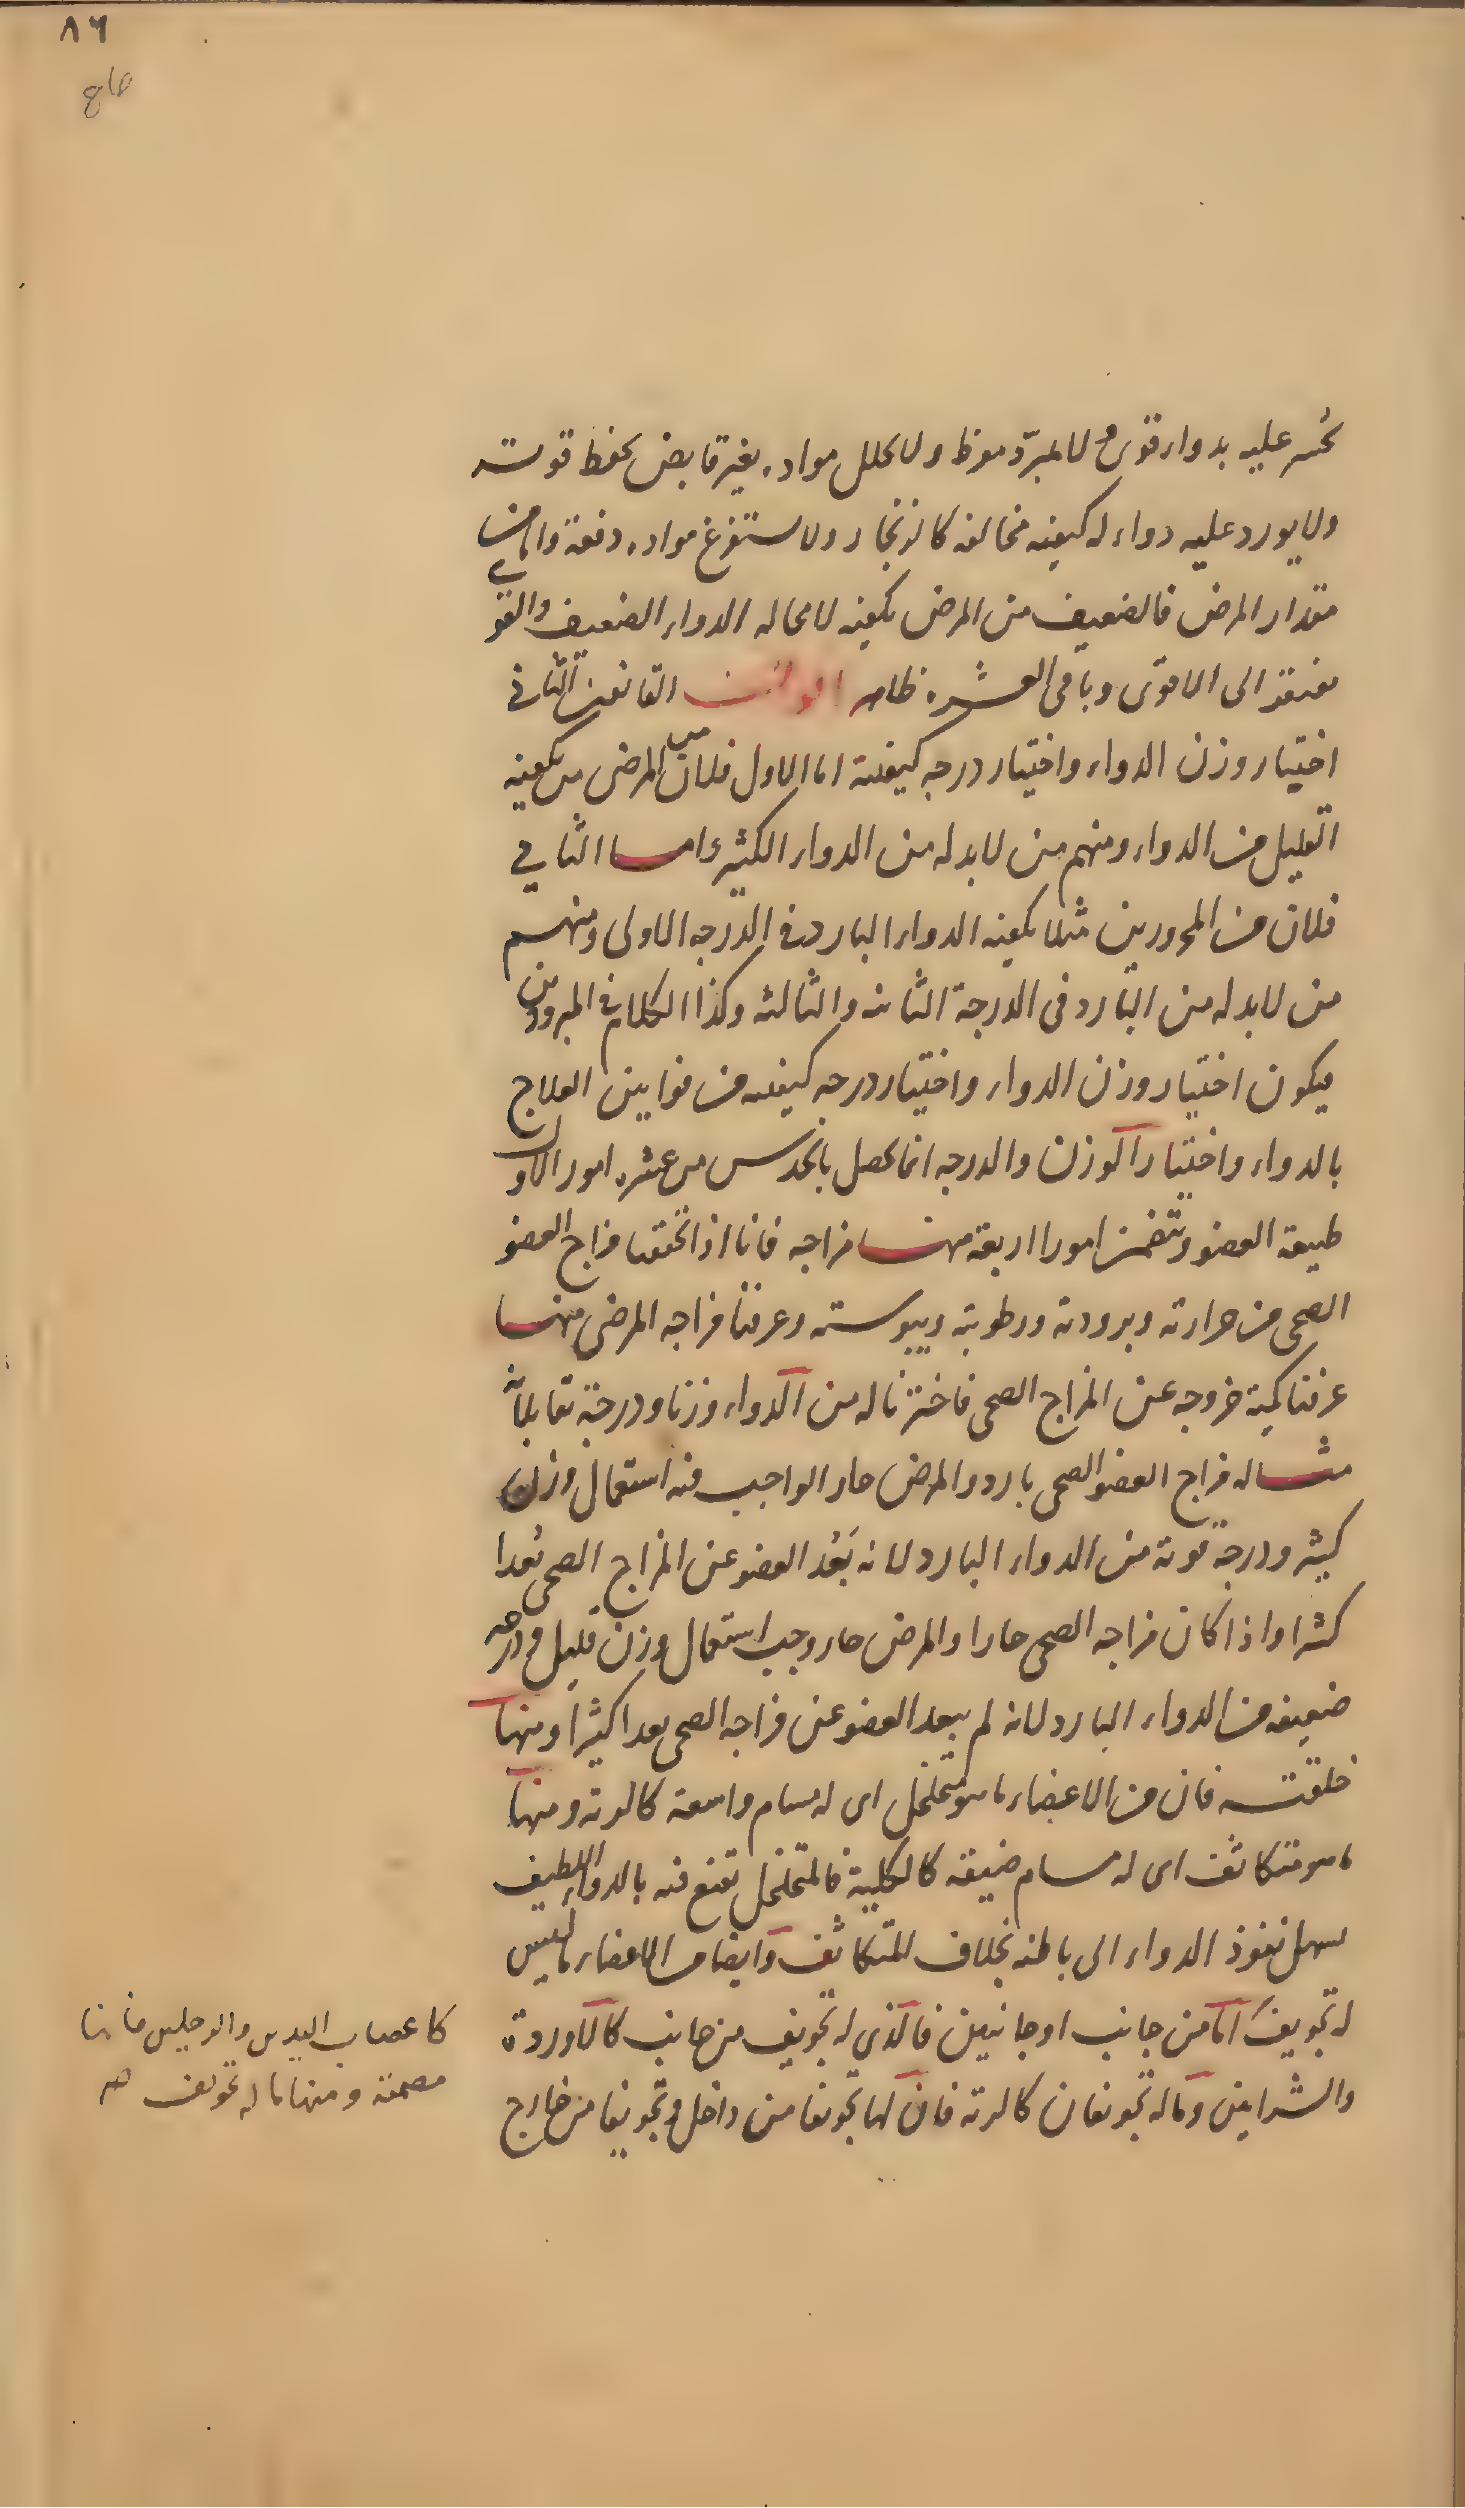 ٨٦
عليه بدواء قوى ولا مبرد مفرط ولا يحلل مواده بغير قابض يحفظ قوته
ولا يورد عليه دواء له كيفيه مخالفه كالزنجار ولا يستفرغ مواده دفعة واما من
مقدار المرض فالضعيف من المرض يكفيه لا محاله الدواء الضعيف والقوي
يفتقر الى الاقوى وباقى العشره ظاهر القانون الثانى
اختيار وزن الدواء واختيار درجه كيفيته اما الاول فلان من المرضى من يكفيه
القليل من الدواء ومنهم من لا بد له من الدواء الكثير واما الثاني
فلان من المحرورين مثلا يكفيه الدواء البارد فى الدرجه الاولى ومنهم
من لا بد له من البارد فى الدرجة الثانيه والثالثه وكذا الكلام فى المبرودين
فيكون اختيار وزن الدواء واختيار درجه كيفيته من قوانين العلاج
بالدواء واختيار الوزن والدرجه انما يحصل بالحدس من عشره امور الاول
طبيعة العضو وتتضمن امورا اربعة منها مزاجه فانا اذا تحققنا مزاج العضو
الصحى من حرارته وبرودته ورطوبته ويبوسته وعرفنا مزاجه المرضى منها
عرفنا كمية خروجه عن المزاج الصحى فاخترنا له من الدواء وزنا ودرجة تقابلانه
مثاله مزاج العضو الصحى بارد والمرض حار الواجب فيه استعمال وزن
كثير ودرجة قوية من الدواء البارد لانه بَعُد العضو عن المزاج الصحى بُعدا
كثيرا واذا كان مزاجه الصحى حارا والمرض حار وجب استعمال وزن قليل ودرجه
ضعيفه من الدواء البارد لانه لم يبعد العضو عن مزاجه الصحى بعدا كثيرا ومنها
خلقته فان من الاعضاء ما هو متخلخل اى له مسام واسعة كالرية ومنها
ما هو متكاثف اى له مسام ضيقه كالكلية فالمتخلخل تقنع فيه بالدواء اللطيف
لسهل نفوذ الدواء الى باطنه بخلاف المتكاثف وايضا من الاعضاء ما ليس
له تجويف اما من جانب او جانبين فالذى له تجويف من جانب كالاوردة
والشرايين وما له تجويفان كالرية فان لها تجويفا من داخل وتجويفا من خارج
كاعصاب اليدين والرجلين فانها
مصمتة ومنها ما له تجويف صح